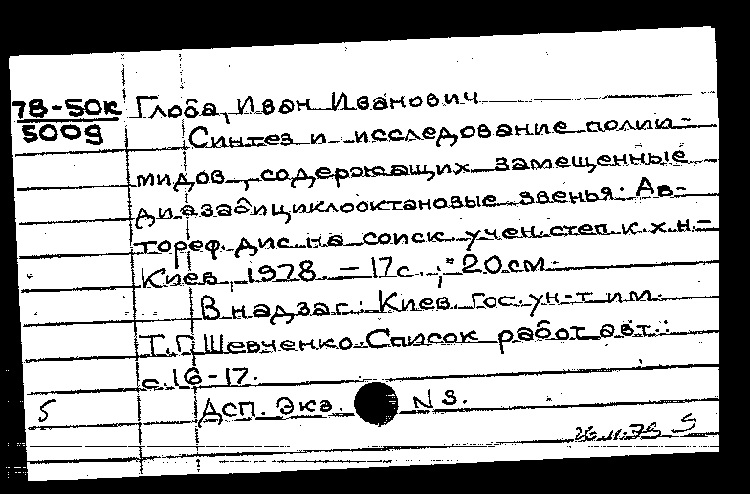 78-50к Глоба, Иван Иванович
5009 Синтез и исследование полии-
мидов, содержащих замещенные
диазабициклооктановые звенья. Ав-
тореф. дис. на соиск. учен. степ. к.х.н. -
Киев, 1978. - 17 с.; 20 см.
В надзаг.: Киев. гос. ун-т им.
Т.Г. Шевченко. Список работ авт.:
с. 16-17.
5 Дсп. Экз. N 3.